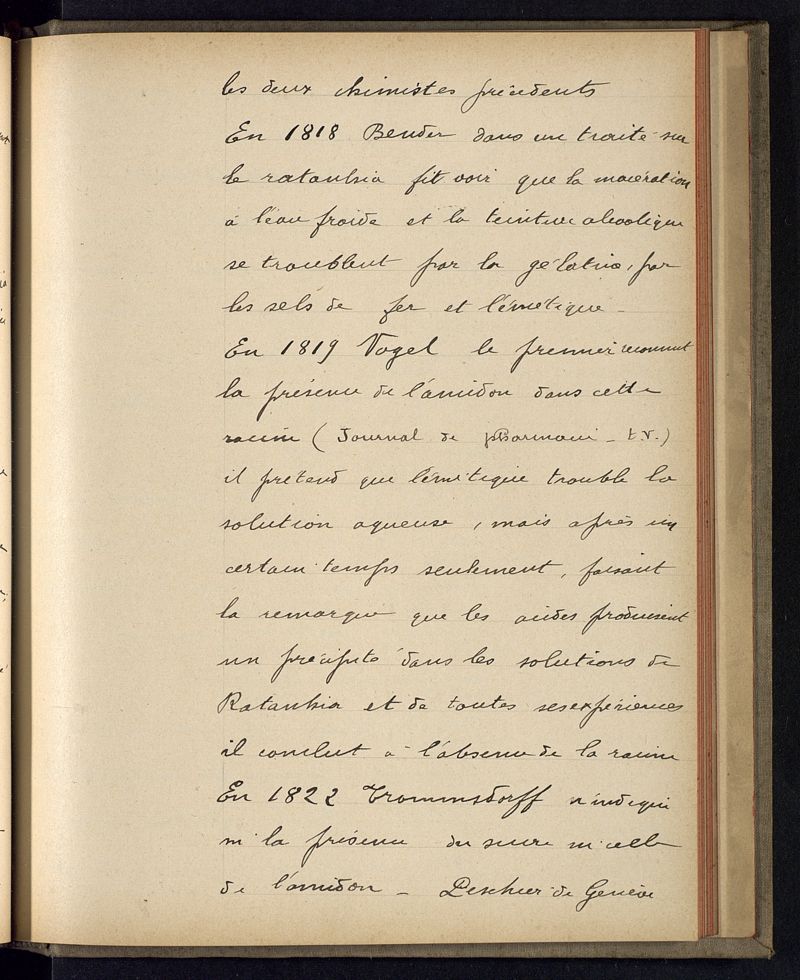 les deux chimistes précédents
En 1818 Bender dans un traité sur
le ratanhia fit voir que la macération
à l'eau froide et la teinture alcoolique
se troublent par la gélatine, par
les sels de fer et l'émétique -
En 1819 Vogel le premier reconnut
la présence de l'amidon dans cette
racine (Journal de Pharmacie - t.V.)
il prétend que l'émétique trouble la
solution aqueuse, mais après un
certain temps seulement, faisant
la remarque que les acides produisent
un précipité dans les solutions de
Ratanhia et de toutes ses expériences
il conclut à l'absence de la racine
En 1822 Trommsdorff n'indique
ni la présence du sucre ni celle
de l'amidon - Peschier de Genève